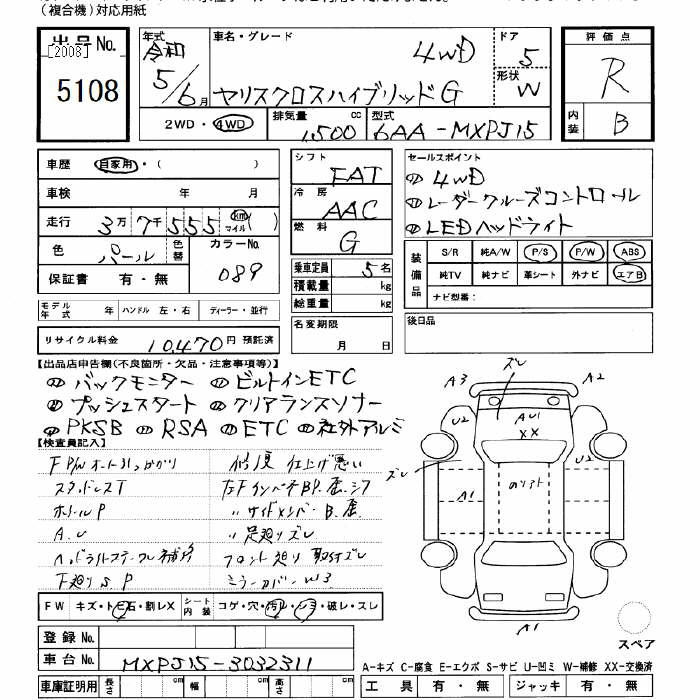 (複合機)対応用紙
出品No.
[2008]
5108
年式 令和 5/6月
車名・グレード 4WD
ヤリスクロスハイブリッドG
ドア 5
形状 W
評価点 R
内装 B
2WD・4WD
排気量 1,500 cc
型式 6AA-MXPJ15
車歴 自家用・( )
車検 年 月
走行 3万7千555 km マイル( )
色 パール 色替 カラーNo. 089
保証書 有・無
モデル年式 年 ハンドル 左・右 ディーラー・並行
リサイクル料金 10,470円 預託済
シフト FAT
冷房 AAC
燃料 G
乗車定員 5名
積載量 kg
総重量 kg
名変期限 月 日
セールスポイント
① 4WD
① レーダークルーズコントロール
① LEDヘッドライト
装備品 S/R 純A/W P/S P/W ABS
純TV 純ナビ 革シート 外ナビ エアB
ナビ型番:
後日品
【出品店申告欄(不良箇所・欠品・注意事項等)】
① バックモニター ① ビルトインETC
① プッシュスタート ① クリアランスソナー
① PKSB ① RSA ① ETC ① 社外アルミ
【検査員記入】
修復 仕上げ悪い
スタッドレスT
ホイールP
〃 サイドメンバーB.歪
A.U
〃 足廻りズレ
フロント廻り 取付ズレ
下廻りS.P
ミラーカバーW3
FW キズ・トビ石・割レX シート内装 コゲ・穴・汚レ・シミ・破レ・スレ
登録No.
車台No. MXPJ15-3032311
車庫証明用 長さ cm 幅 cm 高さ cm
ズレ
A3
A2
U2
AU1
XX
U2
ズレ
A1
A1
A1
スペア
A-キズ C-腐食 E-エクボ S-サビ U-凹ミ W-補修 XX-交換済
工具 有・無 ジャッキ 有・無